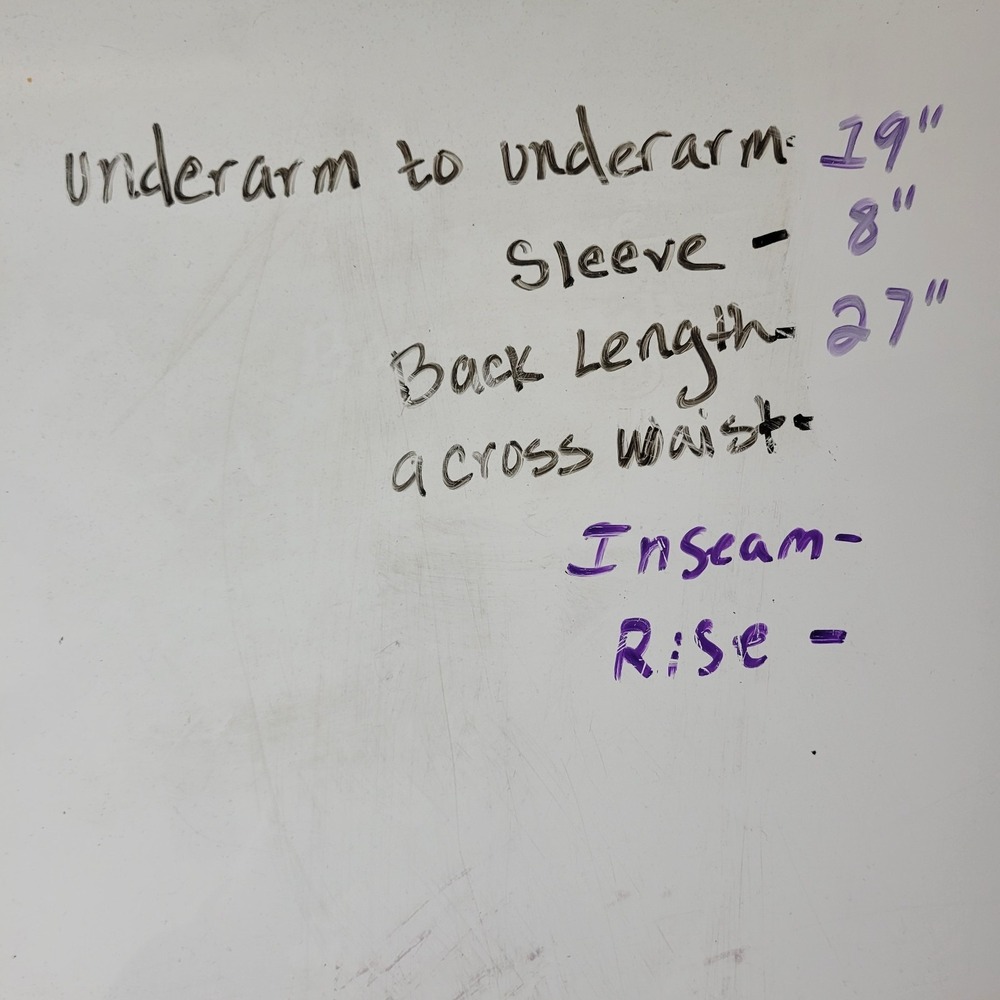 underarm to underarm- 19"
Sleeve - 8"
Back Length- 27"
across waist-
Inseam-
Rise -